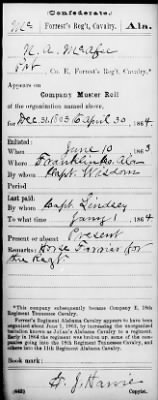 (Confederate.)
Mc Forrest's Reg't, Cavalry. Ala.
N. A. McAfee
Pvt, Co. E, Forrest's Reg't, Cavalry.*
Appears on
Company Muster Roll
of the organization named above,
for Dec 31, 1863 to April 30, 1864.
Enlisted:
When June 10, 1863
Where Franklin Co. Ala
By whom Capt. Wisdom
Period
Last paid:
By whom Capt. Lindsey
To what time Jany 1, 1864
Present or absent Present
Remarks: Horse Farrier for
the Regt
*This company subsequently became Company E, 18th
Regiment Tennessee Cavalry.
Forrest's Regiment Alabama Cavalry appears to have
organized about June 1, 1863, by increasing the
known as Julian's Alabama Cavalry to a regiment.
Early in 1864 the regiment was broken up, some of the com-
panies going into the 18th Regiment Tennessee Cavalry, and
others into the 11th Regiment Alabama Cavalry.
Book mark:
(642) Copyist.